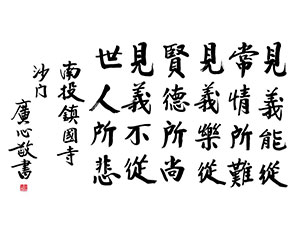 見義能從
常情所難
見義樂從
賢德所尚
見義不從
世人所悲
南投鎮國寺
沙门
廣心敬書